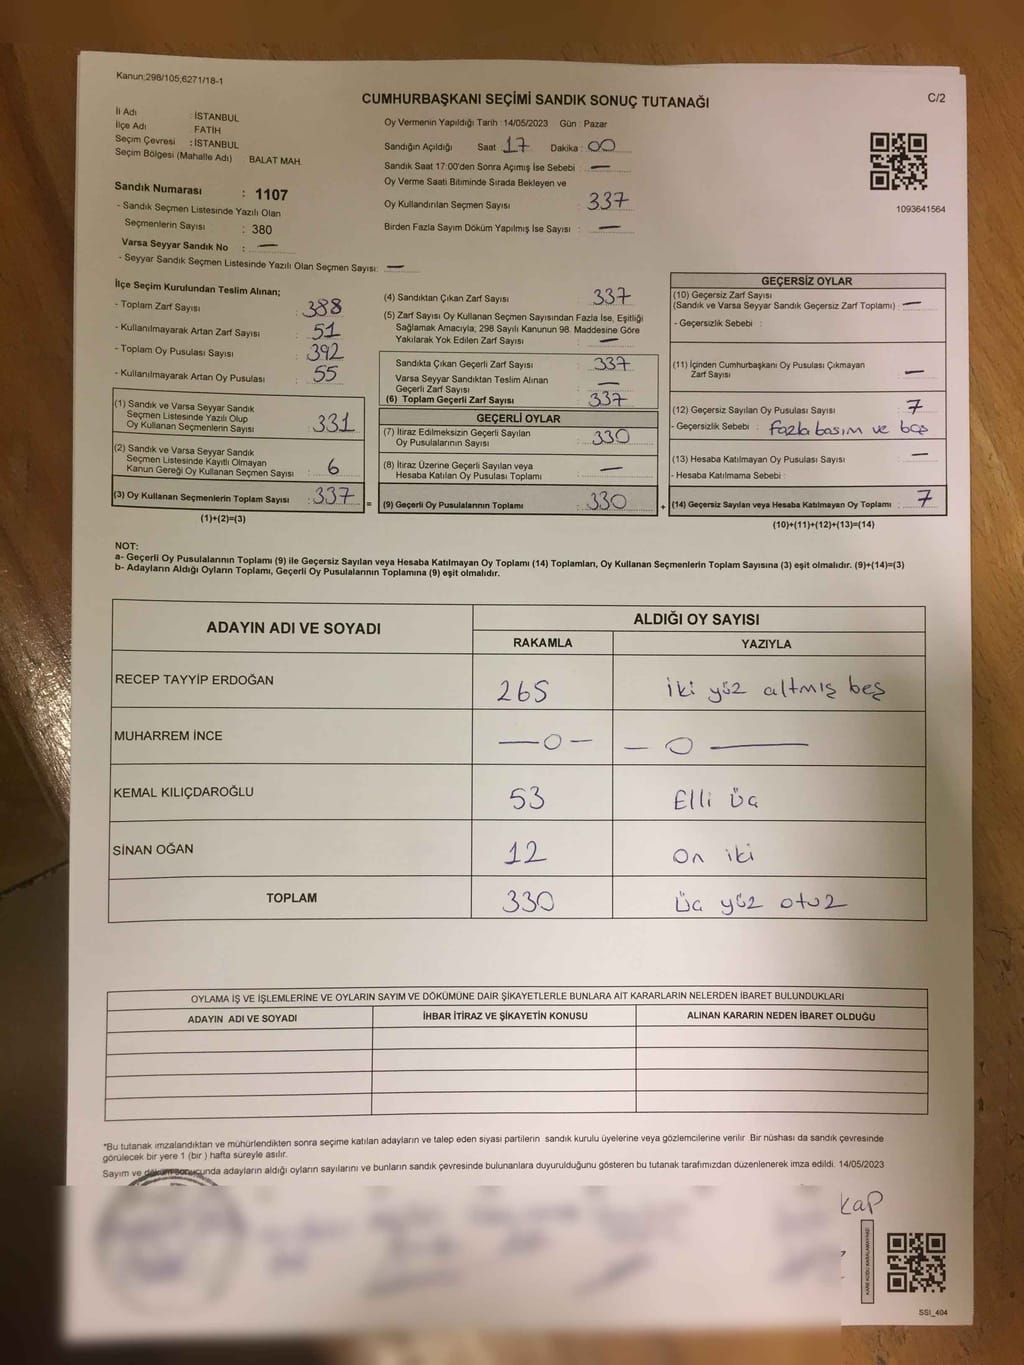 Kanun:298/105,6271/18-1
CUMHURBAŞKANI SEÇİMİ SANDIK SONUÇ TUTANAĞI
C/2
İl Adı : İSTANBUL
İlçe Adı : FATİH
Seçim Çevresi : İSTANBUL
Seçim Bölgesi (Mahalle Adı) BALAT MAH.
Oy Vermenin Yapıldığı Tarih : 14/05/2023 Gün : Pazar
Sandığın Açıldığı Saat : 17 Dakika : 00
Sandık Saat 17:00'den Sonra Açımış İse Sebebi : —
Oy Verme Saati Bitiminde Sırada Bekleyen ve
Oy Kullandırılan Seçmen Sayısı 337
Birden Fazla Sayım Döküm Yapılmış İse Sayısı : —
1093641564
Sandık Numarası : 1107
- Sandık Seçmen Listesinde Yazılı Olan
Seçmenlerin Sayısı : 380
Varsa Seyyar Sandık No : —
- Seyyar Sandık Seçmen Listesinde Yazılı Olan Seçmen Sayısı: —
İlçe Seçim Kurulundan Teslim Alınan;
- Toplam Zarf Sayısı : 388
- Kullanılmayarak Artan Zarf Sayısı : 51
- Toplam Oy Pusulası Sayısı : 392
- Kullanılmayarak Artan Oy Pusulası : 55
(1) Sandık ve Varsa Seyyar Sandık
Seçmen Listesinde Yazılı Olup
Oy Kullanan Seçmenlerin Sayısı : 331
(2) Sandık ve Varsa Seyyar Sandık
Seçmen Listesinde Kayıtlı Olmayan
Kanun Gereği Oy Kullanan Seçmen Sayısı : 6
(3) Oy Kullanan Seçmenlerin Toplam Sayısı : 337 =
(1)+(2)=(3)
(4) Sandıktan Çıkan Zarf Sayısı : 337
(5) Zarf Sayısı Oy Kullanan Seçmen Sayısından Fazla İse, Eşitliği
Sağlamak Amacıyla, 298 Sayılı Kanunun 98. Maddesine Göre
Yakılarak Yok Edilen Zarf Sayısı : —
Sandıkta Çıkan Geçerli Zarf Sayısı : 337
Varsa Seyyar Sandıktan Teslim Alınan
Geçerli Zarf Sayısı : —
(6) Toplam Geçerli Zarf Sayısı : 337
GEÇERLİ OYLAR
(7) İtiraz Edilmeksizin Geçerli Sayılan
Oy Pusulalarının Sayısı : 330
(8) İtiraz Üzerine Geçerli Sayılan veya
Hesaba Katılan Oy Pusulası Toplamı : —
(9) Geçerli Oy Pusulalarının Toplamı : 330 +
GEÇERSİZ OYLAR
(10) Geçersiz Zarf Sayısı
(Sandık ve Varsa Seyyar Sandık Geçersiz Zarf Toplamı) : —
- Geçersizlik Sebebi :
(11) İçinden Cumhurbaşkanı Oy Pusulası Çıkmayan
Zarf Sayısı : —
(12) Geçersiz Sayılan Oy Pusulası Sayısı : 7
- Geçersizlik Sebebi : Fazla basım ve boş
(13) Hesaba Katılmayan Oy Pusulası Sayısı : —
- Hesaba Katılmama Sebebi :
(14) Geçersiz Sayılan veya Hesaba Katılmayan Oy Toplamı : 7
(10)+(11)+(12)+(13)=(14)
NOT:
a- Geçerli Oy Pusulalarının Toplamı (9) ile Geçersiz Sayılan veya Hesaba Katılmayan Oy Toplamı (14) Toplamları, Oy Kullanan Seçmenlerin Toplam Sayısına (3) eşit olmalıdır. (9)+(14)=(3)
b- Adayların Aldığı Oyların Toplamı, Geçerli Oy Pusulalarının Toplamına (9) eşit olmalıdır.
ADAYIN ADI VE SOYADI
ALDIĞI OY SAYISI
RAKAMLA YAZIYLA
RECEP TAYYİP ERDOĞAN 265 İki yüz altmış beş
MUHARREM İNCE — 0 — — 0 —
KEMAL KILIÇDAROĞLU 53 Elli üç
SİNAN OĞAN 12 On iki
TOPLAM 330 Üç yüz otuz
OYLAMA İŞ VE İŞLEMLERİNE VE OYLARIN SAYIM VE DÖKÜMÜNE DAİR ŞİKAYETLERLE BUNLARA AİT KARARLARIN NELERDEN İBARET BULUNDUKLARI
ADAYIN ADI VE SOYADI İHBAR İTİRAZ VE ŞİKAYETİN KONUSU ALINAN KARARIN NEDEN İBARET OLDUĞU
*Bu tutanak imzalandıktan ve mühürlendikten sonra seçime katılan adayların ve talep eden siyasi partilerin sandık kurulu üyelerine veya gözlemcilerine verilir. Bir nüshası da sandık çevresinde
görülecek bir yere 1 (bir ) hafta süreyle asılır.
Sayım ve döküm sonucunda adayların aldığı oyların sayılarını ve bunların sandık çevresinde bulunanlara duyurulduğunu gösteren bu tutanak tarafımızdan düzenlenerek imza edildi. 14/05/2023
kap
SSI_404